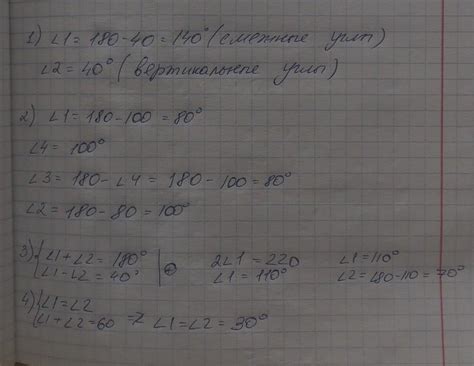 1) ∠1 = 180-40 = 140° (смежные углы)
∠2 = 40° (вертикальные углы)
2) ∠1 = 180-100 = 80°
∠4 = 100°
∠3 = 180-∠4 = 180-100 = 80°
∠2 = 180-80 = 100°
3) {∠1+∠2 = 180° | ⊕ 2∠1 = 220 ∠1 = 110°
∠1-∠2 = 40° ∠1 = 110° ∠2 = 180-110 = 70°
4) {∠1 = ∠2
∠1+∠2 = 60 => ∠1 = ∠2 = 30°